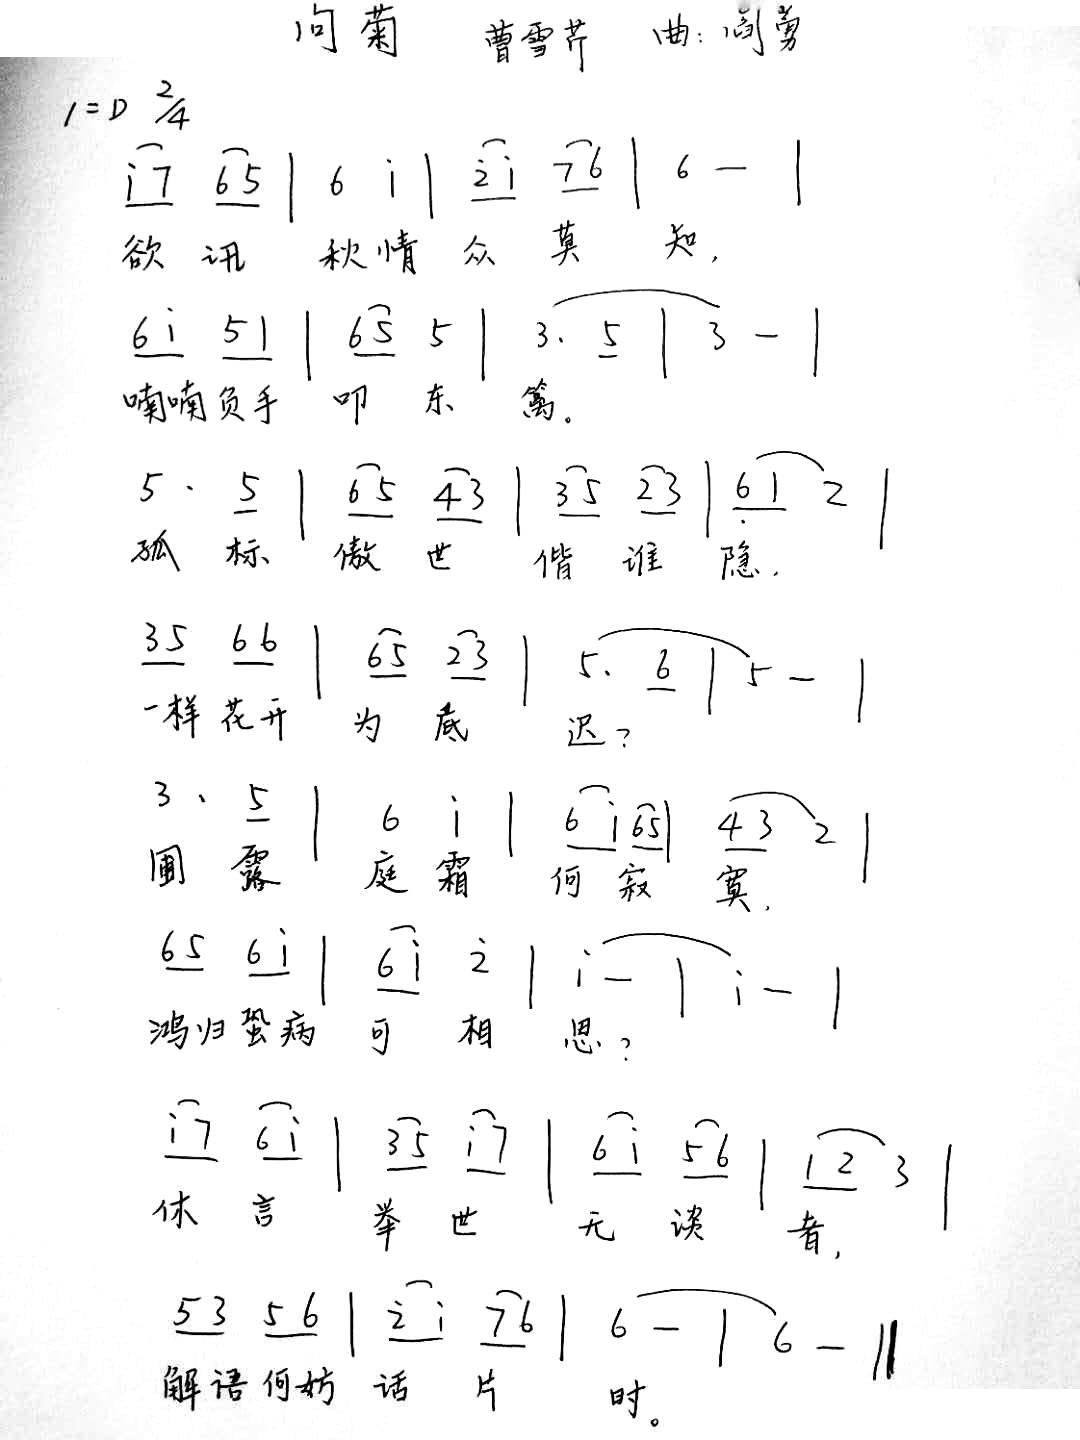 问菊 曹雪芹 曲:阎勇
1=D 2/4
i7 65 | 6 i | 2̇i 76 | 6 — |
欲讯秋情众莫知,
6i 51 | 65 5 | 3. 5 | 3 — |
喃喃负手叩东篱。
5. 5 | 65 43 | 35 23 | 6̣1 2 |
孤标傲世偕谁隐,
35 66 | 65 23 | 5. 6 | 5 — |
一样花开为底迟?
3. 5 | 6 i | 6i 65 | 43 2 |
圃露庭霜何寂寞,
65 6i | 6i 2̇ | i — | i — |
鸿归蛩病可相思?
i7 6i | 35 i7 | 6i 56 | 12 3 |
休言举世无谈者,
53 56 | 2̇i 76 | 6 — | 6 — ‖
解语何妨话片时。